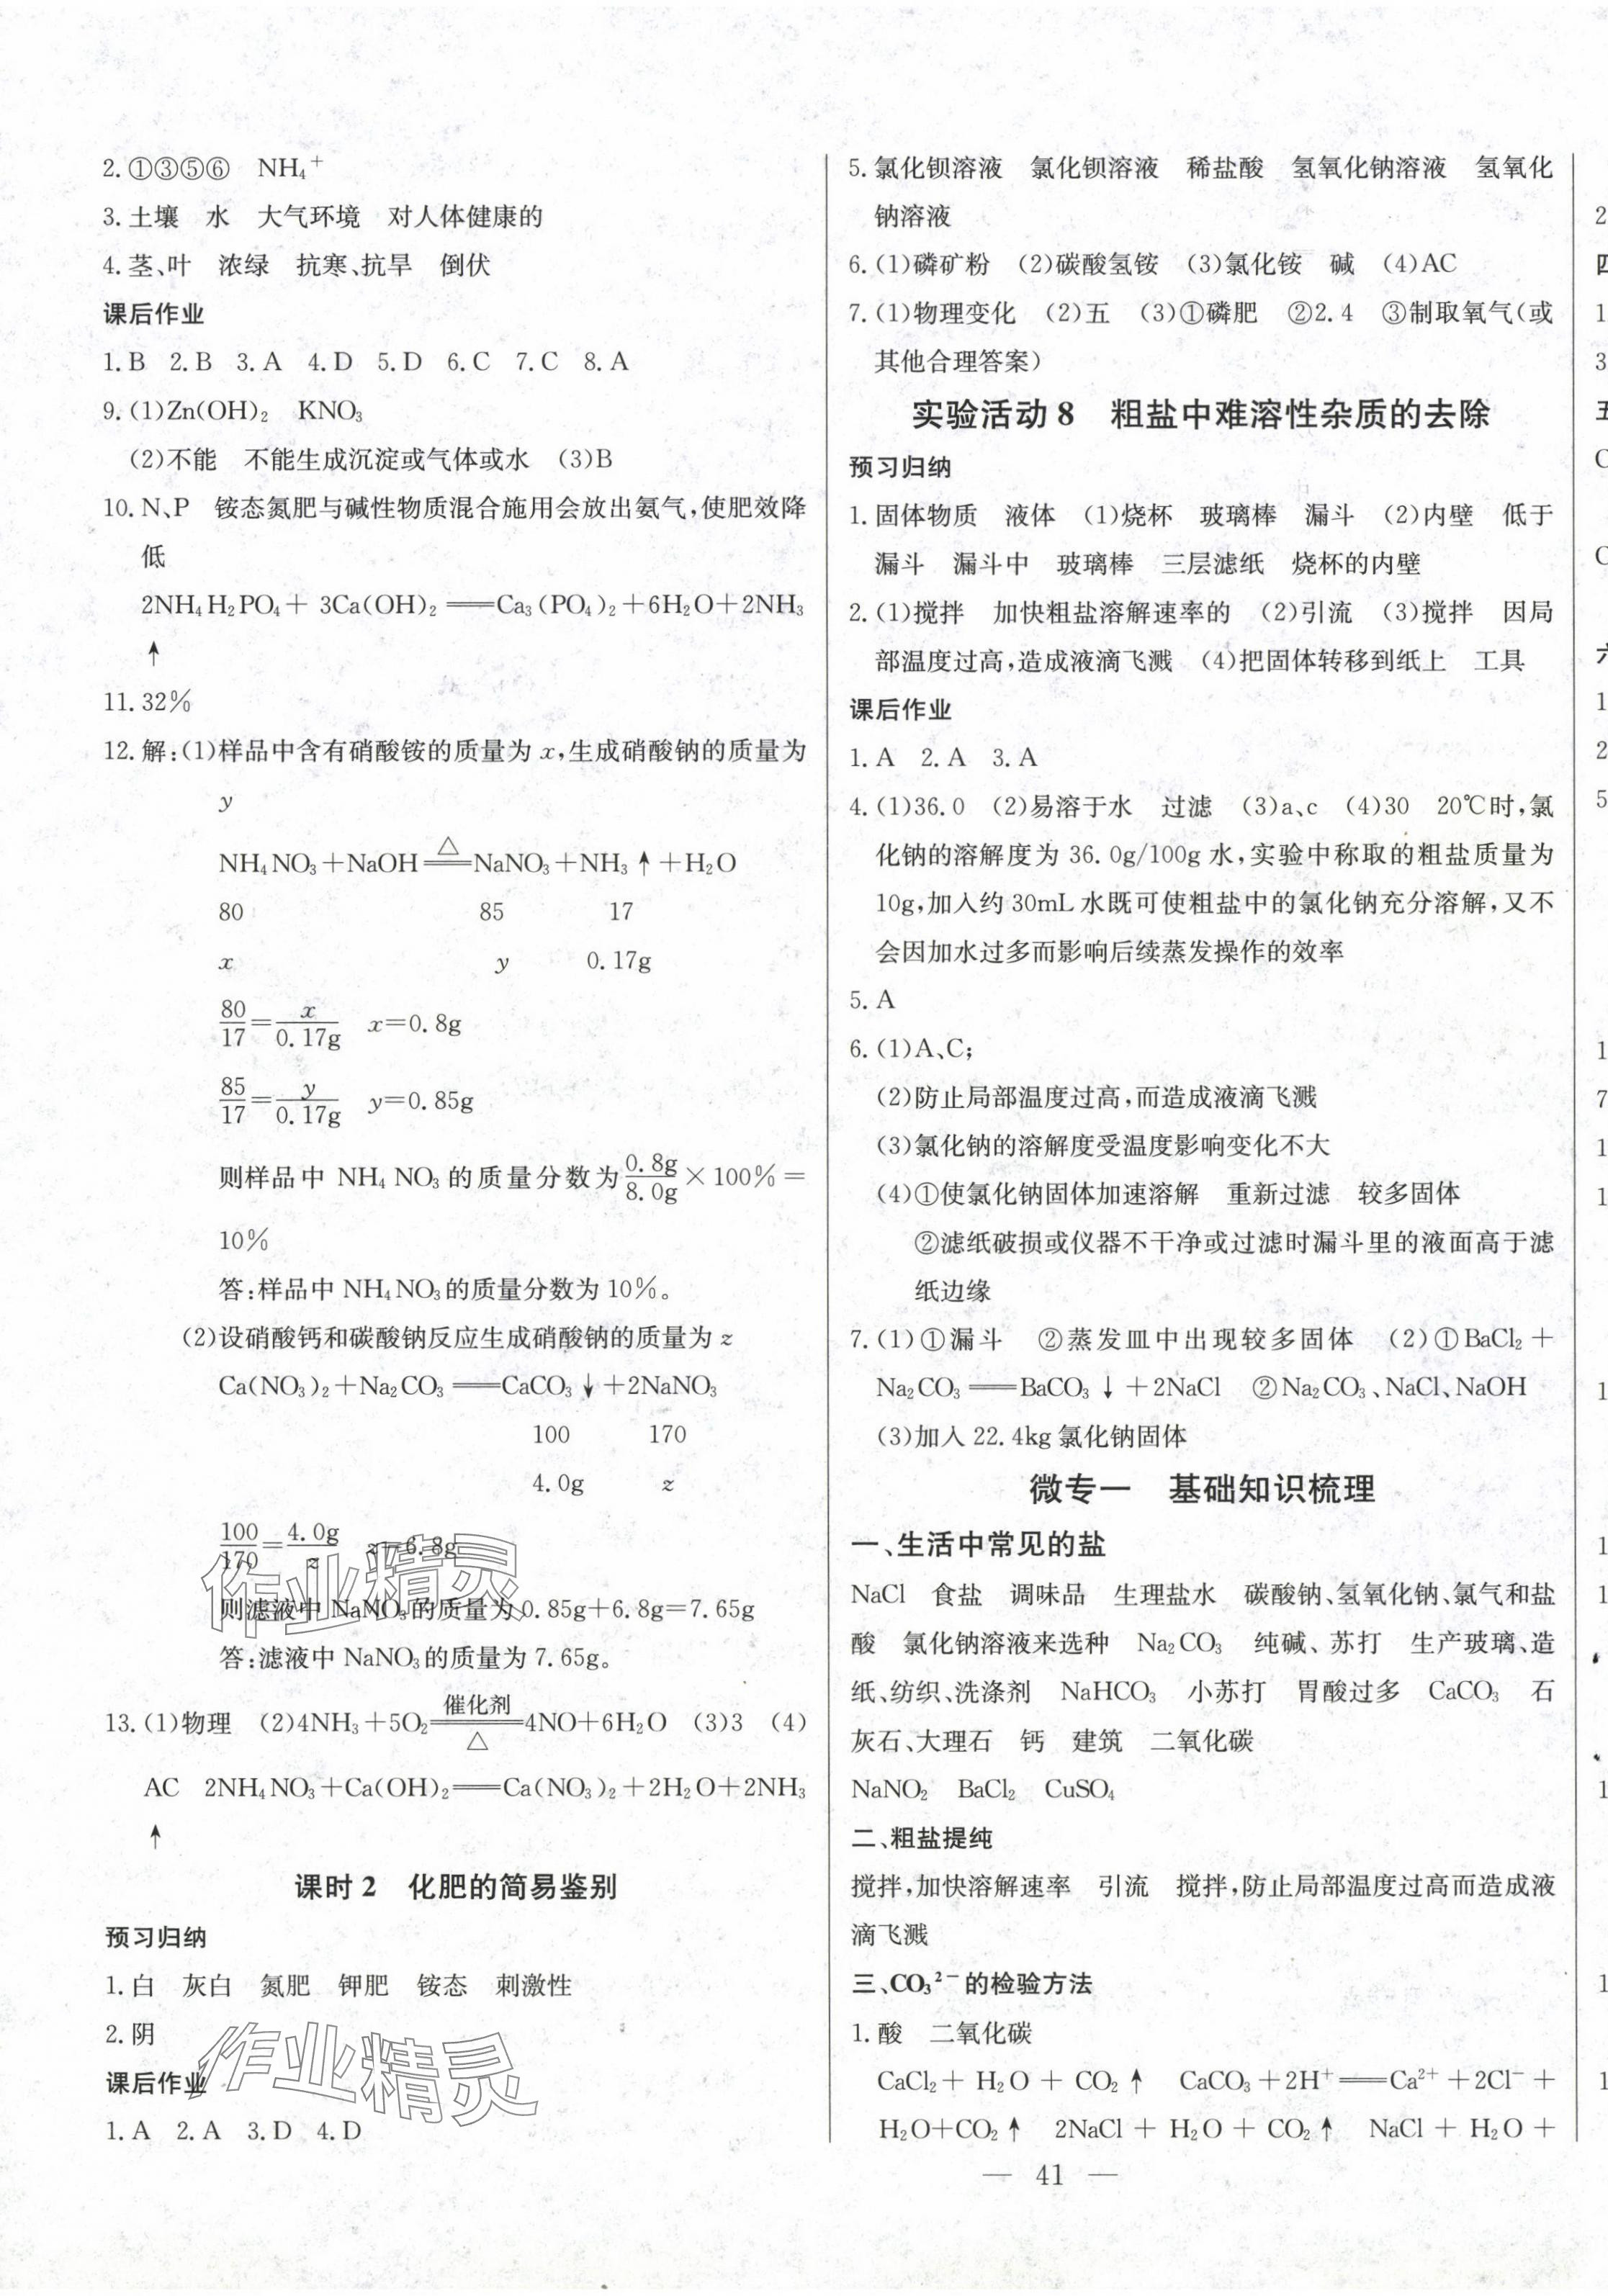 2.①③⑤⑥ NH₄⁺
3.土壤 水 大气环境 对人体健康的
4.茎、叶 浓绿 抗寒、抗旱 倒伏
课后作业
1.B 2.B 3.A 4.D 5.D 6.C 7.C 8.A
9.(1)Zn(OH)₂ KNO₃
(2)不能 不能生成沉淀或气体或水 (3)B
10.N、P 铵态氮肥与碱性物质混合施用会放出氨气,使肥效降
低
2NH₄H₂PO₄+3Ca(OH)₂══Ca₃(PO₄)₂+6H₂O+2NH₃
↑
11.32%
12.解:(1)样品中含有硝酸铵的质量为x,生成硝酸钠的质量为
y
△
NH₄NO₃+NaOH══NaNO₃+NH₃↑+H₂O
80 85 17
x y 0.17g
80/17=x/0.17g x=0.8g
85/17=y/0.17g y=0.85g
则样品中NH₄NO₃的质量分数为0.8g/8.0g×100%=
10%
答:样品中NH₄NO₃的质量分数为10%。
(2)设硝酸钙和碳酸钠反应生成硝酸钠的质量为z
Ca(NO₃)₂+Na₂CO₃══CaCO₃↓+2NaNO₃
100 170
4.0g z
100/170=4.0g/z z=6.8g
则滤液中NaNO₃的质量为0.85g+6.8g=7.65g
答:滤液中NaNO₃的质量为7.65g。
催化剂
13.(1)物理 (2)4NH₃+5O₂══4NO+6H₂O (3)3 (4)
△
AC 2NH₄NO₃+Ca(OH)₂══Ca(NO₃)₂+2H₂O+2NH₃
↑
课时2 化肥的简易鉴别
预习归纳
1.白 灰白 氮肥 钾肥 铵态 刺激性
2.阴
课后作业
1.A 2.A 3.D 4.D
作业精灵
作业精灵
5.氯化钡溶液 氯化钡溶液 稀盐酸 氢氧化钠溶液 氢氧化
钠溶液
6.(1)磷矿粉 (2)碳酸氢铵 (3)氯化铵 碱 (4)AC
7.(1)物理变化 (2)五 (3)①磷肥 ②2.4 ③制取氧气(或
其他合理答案)
实验活动8 粗盐中难溶性杂质的去除
预习归纳
1.固体物质 液体 (1)烧杯 玻璃棒 漏斗 (2)内壁 低于
漏斗 漏斗中 玻璃棒 三层滤纸 烧杯的内壁
2.(1)搅拌 加快粗盐溶解速率的 (2)引流 (3)搅拌 因局
部温度过高,造成液滴飞溅 (4)把固体转移到纸上 工具
课后作业
1.A 2.A 3.A
4.(1)36.0 (2)易溶于水 过滤 (3)a、c (4)30 20℃时,氯
化钠的溶解度为36.0g/100g水,实验中称取的粗盐质量为
10g,加入约30mL水既可使粗盐中的氯化钠充分溶解,又不
会因加水过多而影响后续蒸发操作的效率
5.A
6.(1)A、C;
(2)防止局部温度过高,而造成液滴飞溅
(3)氯化钠的溶解度受温度影响变化不大
(4)①使氯化钠固体加速溶解 重新过滤 较多固体
②滤纸破损或仪器不干净或过滤时漏斗里的液面高于滤
纸边缘
7.(1)①漏斗 ②蒸发皿中出现较多固体 (2)①BaCl₂+
Na₂CO₃══BaCO₃↓+2NaCl ②Na₂CO₃、NaCl、NaOH
(3)加入22.4kg氯化钠固体
微专一 基础知识梳理
一、生活中常见的盐
NaCl 食盐 调味品 生理盐水 碳酸钠、氢氧化钠、氯气和盐
酸 氯化钠溶液来选种 Na₂CO₃ 纯碱、苏打 生产玻璃、造
纸、纺织、洗涤剂 NaHCO₃ 小苏打 胃酸过多 CaCO₃ 石
灰石、大理石 钙 建筑 二氧化碳
NaNO₂ BaCl₂ CuSO₄
二、粗盐提纯
搅拌,加快溶解速率 引流 搅拌,防止局部温度过高而造成液
滴飞溅
三、CO₃²⁻的检验方法
1.酸 二氧化碳
CaCl₂+H₂O+CO₂↑ CaCO₃+2H⁺══Ca²⁺+2Cl⁻+
H₂O+CO₂↑ 2NaCl+H₂O+CO₂↑ NaCl+H₂O+
— 41 —